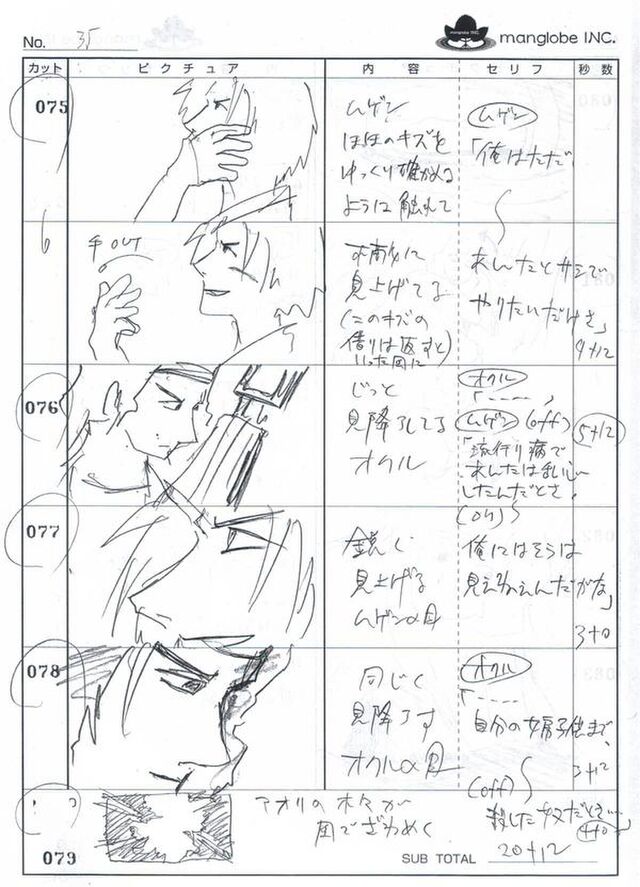 No. 35
manglobe INC.
カット ピクチュア 内容 セリフ 秒数
075
ムゲン
ほほのキズを
ゆっくり確かめる
ように触れて
ムゲン
「俺はただ
6
手OUT
見上げてる
(このキズの
借りは返すと)
いった風に
あんたとサシで
やりたいだけさ」
9+12
076
じっと
見降ろしてる
オクル
オクル
「----」
ムゲン (off)
「流行り病で
あんたは乱心
したんだとさ。
5+12
077
鋭く
見上げる
ムゲンの目
(on)
俺にはそうは
見えねえんだがな」
3+0
078
同じく
見降ろす
オクルの目
オクル
「----
自分の女房子供まで、
3+12
(off)
殺した
4+0
079
アオリの木々が
風でざわめく
SUB TOTAL 20+12